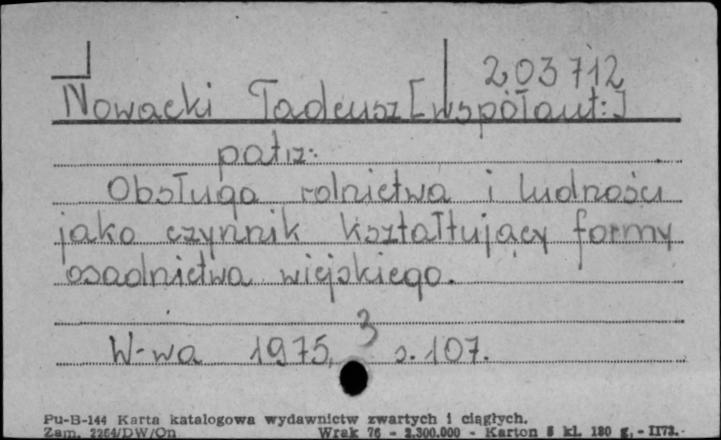 203712
Nowacki Tadeusz [współaut.]
patrz:
Obsługa rolnictwa i ludności
jako czynnik kształtujący formy
osadnictwa wiejskiego.
3
W-wa 1975, s. 107.
Pu-B-144 Karta katalogowa wydawnictw zwartych i ciągłych.
Zam. 2264/DW/On Wrak 76 - 2.300.000 - Karton 5 kl. 180 g, - II73.